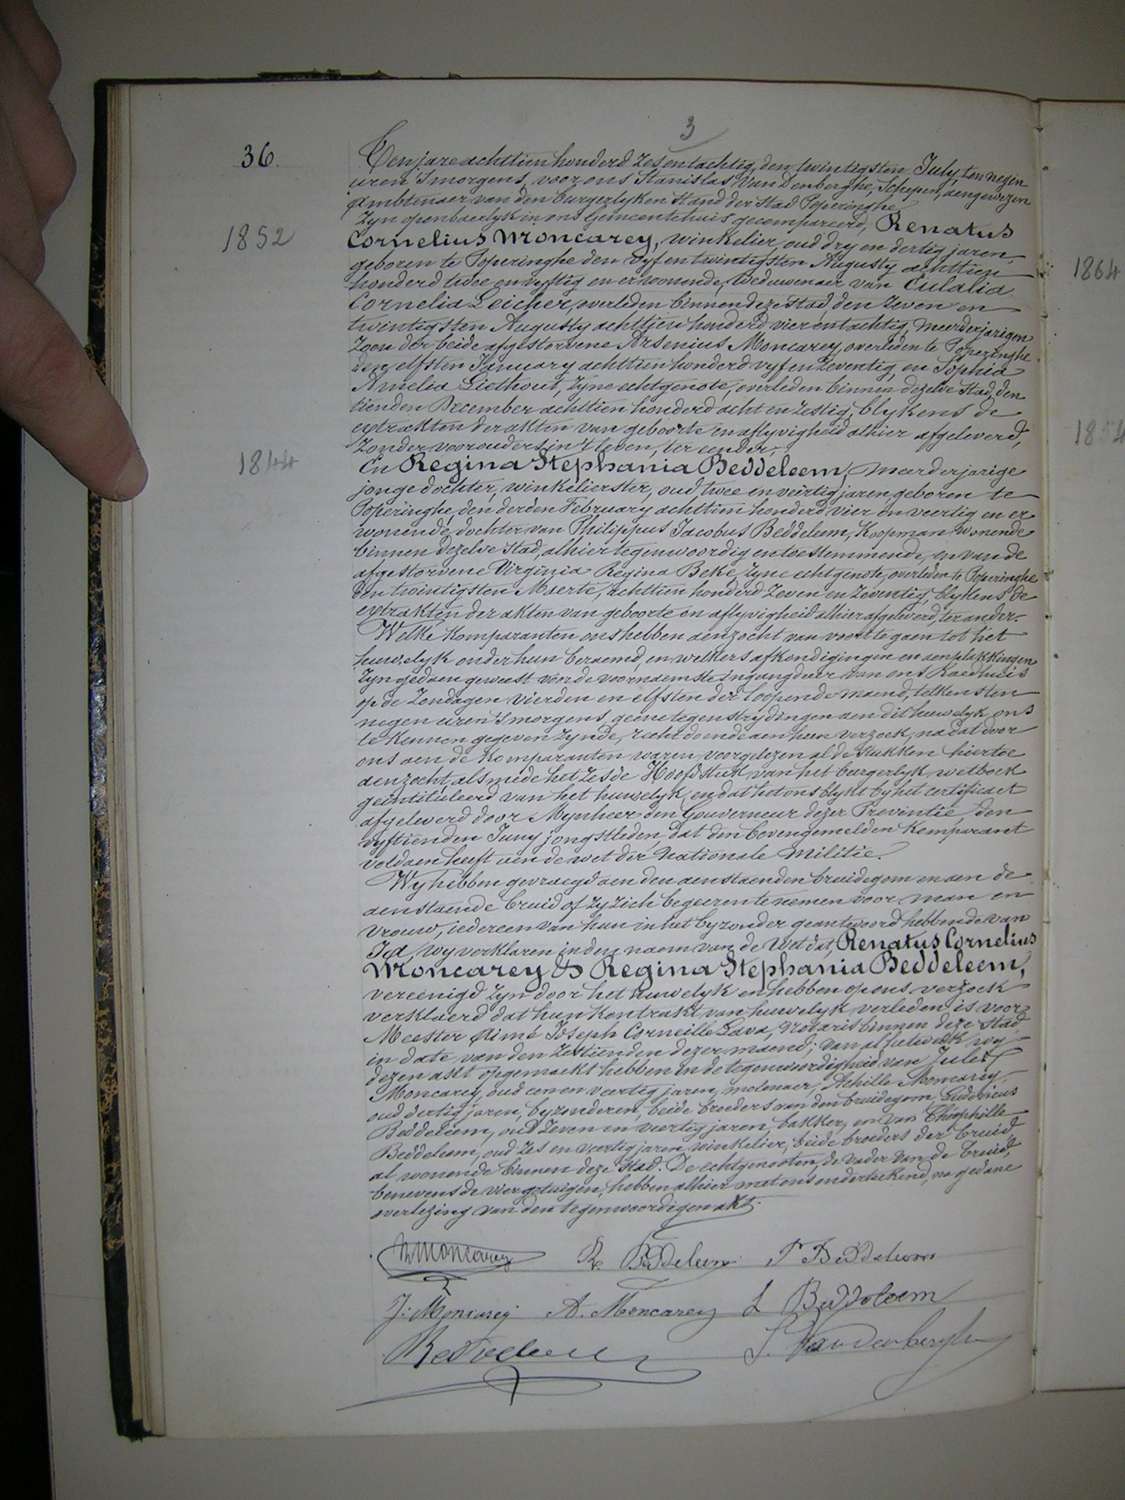 3
36.
Ten jare achttien honderd zes en tachtig, den twintigsten July, ten negen
uren 's morgens, voor ons Stanislas Van Denberghe, Schepen, aengewezen
Ambtenaer van den burgerlyken Stand der stad Poperinghe
Zyn openbaerlyk in ons Gemeentehuis gecompareerd, Renatus
1852
Cornelius Moncarey, winkelier, oud dry en dertig jaren,
geboren te Poperinghe den vyf en twintigsten Augusty achttien
honderd twee en vyftig en er wonende, weduwenaer van Eulalia
1864
Cornelia Leicher, overleden binnen deze stad, den zeven en
twintigsten Augusty achttien honderd vier en tachtig, meerderjarigen
Zoon der beide afgestorvene Arsenius Moncarey, overleden te Poperinghe
den elfsten January achttien honderd vyf en zeventig, en Sophia
Amelia Liethout, zyne echtgenote, overleden binnen dezelve Stad, den
tienden December achttien honderd acht en zestig, blykens de
extrakten der akten van geboorte en aflyvigheid alhier afgeleverd,
1854
Zonder voorouders in 't leven, ter eender,
1844
En Regina Stephania Beddeleem, meerderjarige
jonge dochter, winkelierster, oud twee en veertig jaren, geboren te
Poperinghe, den derden February achttien honderd vier en veertig en er
wonende, dochter van Philippus Jacobus Beddeleem, Koopman wonende
binnen dezelve Stad, alhier tegenwoordig en toestemmende, en van de
afgestorvene Virginia Regina Beke, zyne echtgenote, overleden te Poperinghe
den twintigsten Maerte, achttien honderd zeven en zeventig, blykens de
extrakten der akten van geboorte en aflyvigheid alhier afgeleverd, ter ander.
Welke Komparanten ons hebben aenzocht van voort te gaen tot het
huwelyk onder hun beraemd, en welkers afkondigingen en aenplakkingen
Zyn gedaen geweest voor de voornaemste Ingangdeur van ons Raedhuis
op de Zondagen vierden en elfsten der loopende maend, telkens ten
negen uren 's morgens, geene tegenstrydingen aen dit huwelyk ons
te kennen gegeven zynde, recht doende aen hun verzoek, na dat door
ons aen de Komparanten waren voorgelezen al de stukken hiertoe
aenzocht, alsmede het Zesde Hoofdstuk van het burgerlyk wetboek
geintituleerd van het huwelyk, en dat het ons blykt by het certificaet
afgeleverd door Mynheer den Gouverneur dezer Provintie, den
vyftienden Juny jongstleden, dat den bovengemelden Komparant
voldaen heeft aen de wet der Nationale Militie.
Wy hebben gevraegd aen den aenstaenden bruidegom en aen de
aenstaende bruid of zy zich begeeren te nemen voor man en
vrouw, iedereen van hun in het byzonder geantwoord hebbende van
Ja, wy verklaren in den naem van de Wet dat, Renatus Cornelius
Moncarey & Regina Stephania Beddeleem,
vereenigd zyn door het huwelyk en hebben op ons verzoek
verklaerd dat hun kontrakt van huwelyk verleden is voor
Meester Aimé Joseph Corneille Lava, Notaris binnen deze Stad,
in date van den zestienden dezer maend; van al hetwelk wy
dezen akt opgemaekt hebben in de tegenwoordigheid van Jules
Moncarey, oud een en veertig jaren, molenaer, Achille Moncarey
oud dertig jaren, byzonderen, beide broeders van den bruidegom, Ludovicus
Beddeleem, oud zeven en veertig jaren, bakker, en van Theophille
Beddeleem, oud zes en veertig jaren, winkelier, beide broeders der bruid,
al wonende binnen deze Stad. De echtgenooten, de vader van de bruid,
benevens de vier getuigen, hebben alhier met ons onderteekend, na gedane
overlezing van den tegenwoordigen akt.
R Moncarey R. Beddeleem P Beddeleem
J. Moncarey A. Moncarey L Beddeleem
Beddeleem S. Vandenberghe